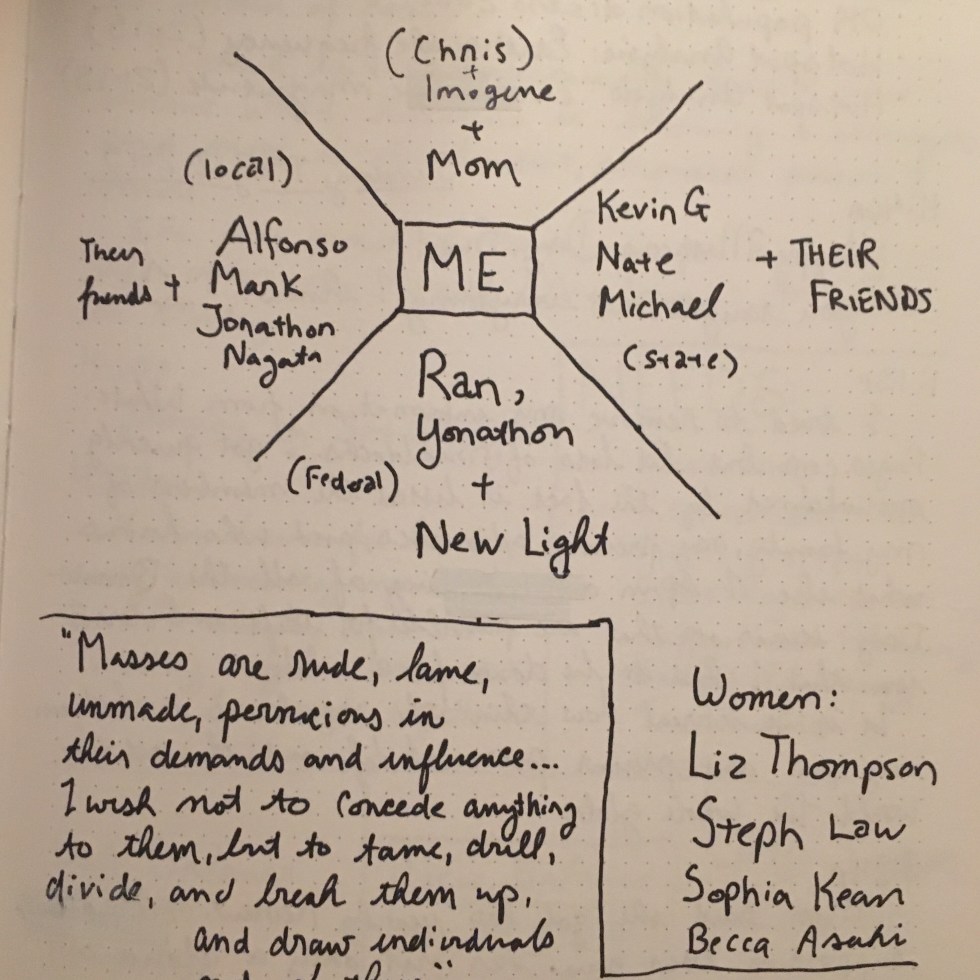 (Chris)
+
Imogene
+
Mom
(local)
Alfonso
Mark
Jonathon
Nagata
+
Their
friends
ME
Kevin G
Nate
Michael
(state)
+ THEIR
FRIENDS
Ran,
Yonathon
+
New Light
(Federal)
"Masses are rude, lame,
unmade, pernicious in
their demands and influence...
I wish not to concede anything
to them, but to tame, drill,
divide, and break them up,
and draw individuals
Women:
Liz Thompson
Steph Law
Sophia Kean
Becca Asaki